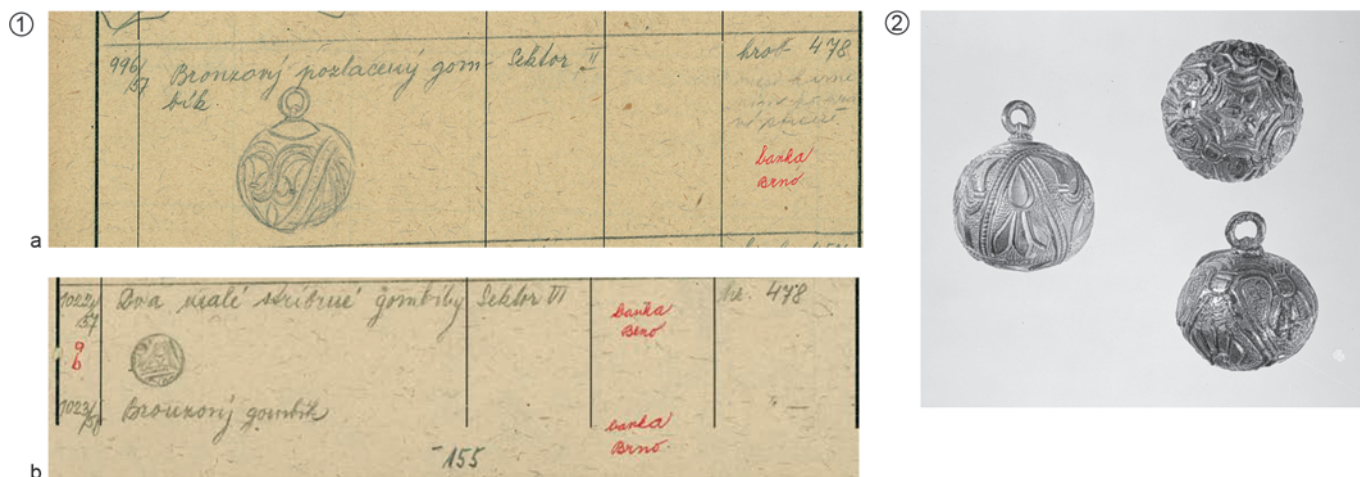 ①
996/57 Bronzový pozlacený gom- Sektor II hrob 478
bík.
banka
Brno
a
1022/57 Dva malé stříbrné gombíky Sektor VI hr. 478
banka
Brno
a
b
1023/57 Bronzový gombík " —
banka
Brno
155
b
②